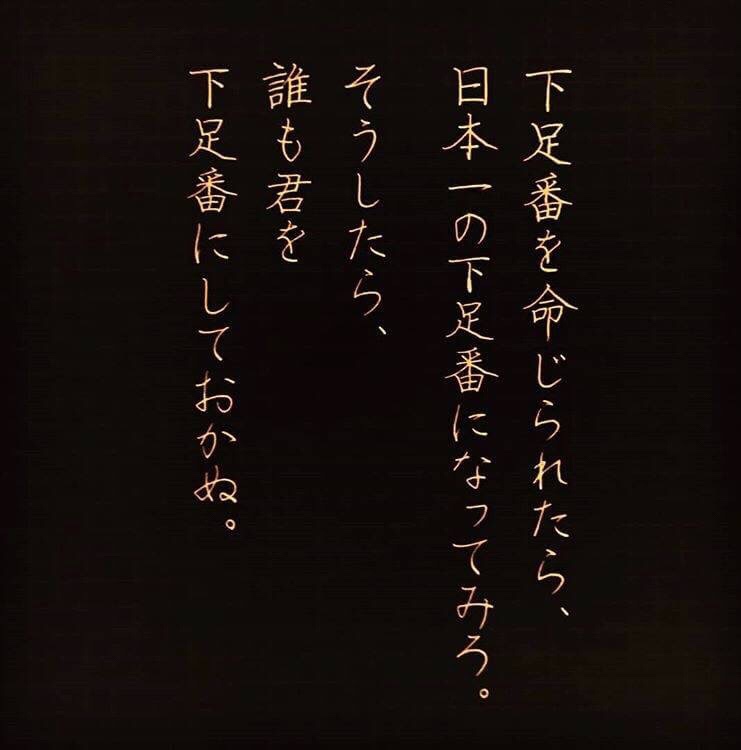 下足番を命じられたら、
日本一の下足番になってみろ。
そうしたら、
誰も君を
下足番にしておかぬ。